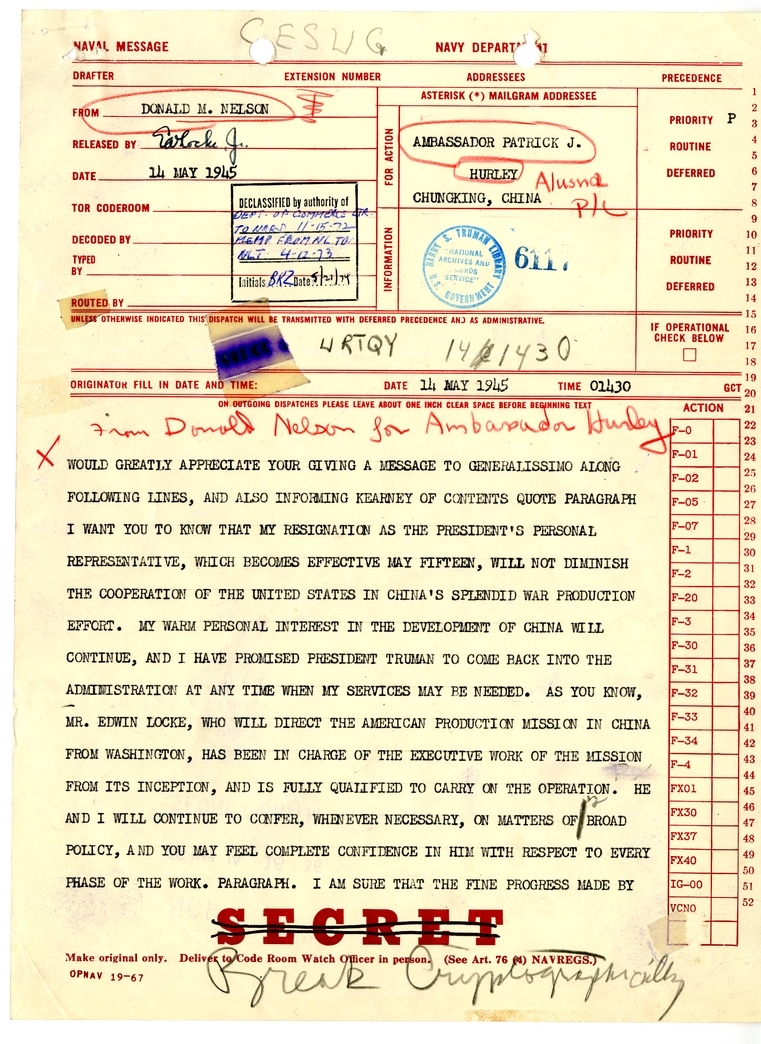 GESWG
NAVAL MESSAGE
NAVY DEPARTMENT
DRAFTER
EXTENSION NUMBER
ADDRESSEES
PRECEDENCE
FROM DONALD M. NELSON
ASTERISK (*) MAILGRAM ADDRESSEE
RELEASED BY EALocke Jr.
DATE 14 MAY 1945
FOR ACTION
AMBASSADOR PATRICK J.
HURLEY
CHUNGKING, CHINA
Alusna
P/L
PRIORITY P
ROUTINE
DEFERRED
TOR CODEROOM
DECODED BY
TYPED
BY
ROUTED BY
DECLASSIFIED by authority of
DEPT. OF COMMERCE LTR.
TO NARS 11-15-72
MEMP FROM NL TO
NLT 4-12-73
Initials BKZ Date 5/21/74
INFORMATION
HARRY S. TRUMAN LIBRARY
"NATIONAL
ARCHIVES AND
RECORDS
SERVICE"
U.S. GOVERNMENT
6117
PRIORITY
ROUTINE
DEFERRED
UNLESS OTHERWISE INDICATED THIS DISPATCH WILL BE TRANSMITTED WITH DEFERRED PRECEDENCE AND AS ADMINISTRATIVE.
IF OPERATIONAL
CHECK BELOW
WRTQY 14/21430
ORIGINATOR FILL IN DATE AND TIME: DATE 14 MAY 1945 TIME 01430 GCT
ON OUTGOING DISPATCHES PLEASE LEAVE ABOUT ONE INCH CLEAR SPACE BEFORE BEGINNING TEXT
ACTION
From Donald Nelson for Ambassador Hurley
X
WOULD GREATLY APPRECIATE YOUR GIVING A MESSAGE TO GENERALISSIMO ALONG
FOLLOWING LINES, AND ALSO INFORMING KEARNEY OF CONTENTS QUOTE PARAGRAPH
I WANT YOU TO KNOW THAT MY RESIGNATION AS THE PRESIDENT'S PERSONAL
REPRESENTATIVE, WHICH BECOMES EFFECTIVE MAY FIFTEEN, WILL NOT DIMINISH
THE COOPERATION OF THE UNITED STATES IN CHINA'S SPLENDID WAR PRODUCTION
EFFORT. MY WARM PERSONAL INTEREST IN THE DEVELOPMENT OF CHINA WILL
CONTINUE, AND I HAVE PROMISED PRESIDENT TRUMAN TO COME BACK INTO THE
ADMINISTRATION AT ANY TIME WHEN MY SERVICES MAY BE NEEDED. AS YOU KNOW,
MR. EDWIN LOCKE, WHO WILL DIRECT THE AMERICAN PRODUCTION MISSION IN CHINA
FROM WASHINGTON, HAS BEEN IN CHARGE OF THE EXECUTIVE WORK OF THE MISSION
FROM ITS INCEPTION, AND IS FULLY QUALIFIED TO CARRY ON THE OPERATION. HE
AND I WILL CONTINUE TO CONFER, WHENEVER NECESSARY, ON MATTERS OF BROAD
POLICY, AND YOU MAY FEEL COMPLETE CONFIDENCE IN HIM WITH RESPECT TO EVERY
PHASE OF THE WORK. PARAGRAPH. I AM SURE THAT THE FINE PROGRESS MADE BY
F-0
F-01
F-02
F-05
F-07
F-1
F-2
F-20
F-3
F-30
F-31
F-32
F-33
F-34
F-4
FX01
FX30
FX37
FX40
IG-00
VCNO
1
2
3
4
5
6
7
8
9
10
11
12
13
14
15
16
17
18
19
20
21
22
23
24
25
26
27
28
29
30
31
32
33
34
35
36
37
38
39
40
41
42
43
44
45
46
47
48
49
50
51
52
SECRET
Make original only. Deliver to Code Room Watch Officer in person. (See Art. 76 (4) NAVREGS.)
OPNAV 19-67
Break Cryptographically